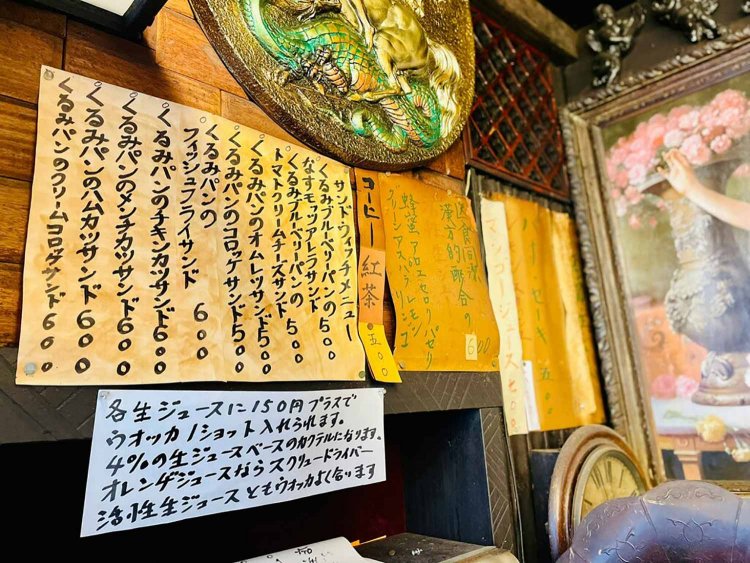 サンドウィッチメニュー
くるみブルーベリーパンの
なすモッツアレラサンド 500
くるみブルーベリーパンの
トマトクリームチーズサンド 500
くるみパンのオムレツサンド 500
くるみパンのコロッケサンド 500
くるみパンの
フィッシュフライサンド 600
くるみパンのチキンカツサンド 600
くるみパンのメンチカツサンド 600
くるみパンのハムカツサンド 600
くるみパンのクリームコロッケサンド 600
コーヒー
紅茶
五〇〇
医食同源
漢方的配合の
蜂蜜アロエセロリパセリ
グリーンアスパラレモンリンゴ
600
ジュース
五〇〇
各生ジュースに150円プラスで
ウオッカ1ショット入れられます。
4%の生ジュースベースのカクテルになります。
オレンヂジュースならスクリュードライバー
活性生ジュースともウオッカよく合います